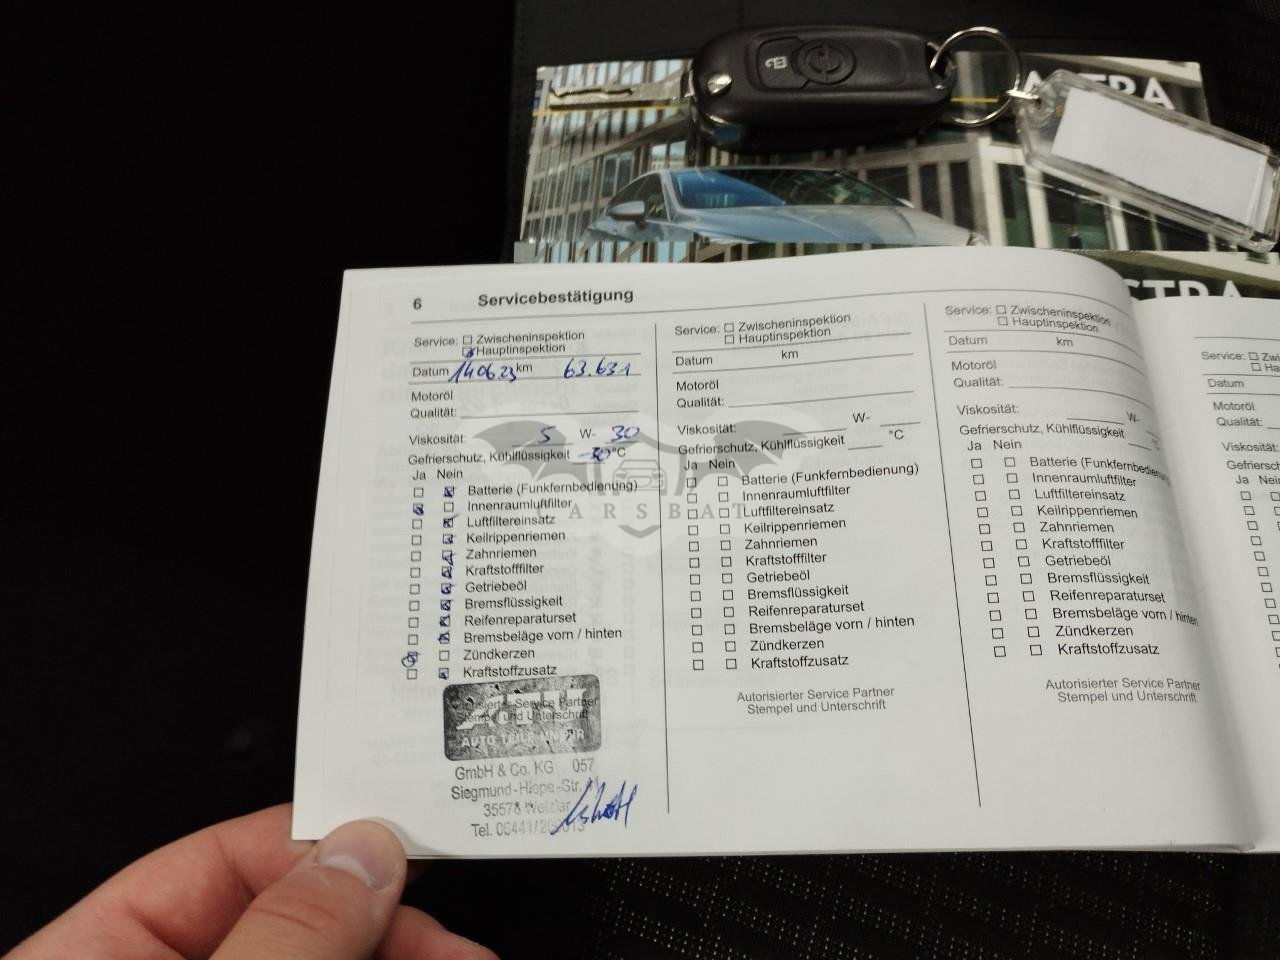 ASTRA
STRA
6 Servicebestätigung
Service: Zwischeninspektion
Hauptinspektion
Datum 140623 km 63.631
Motoröl
Qualität:
Viskosität: 5 W- 30
Gefrierschutz, Kühlflüssigkeit -30 °C
Ja Nein
Batterie (Funkfernbedienung)
Innenraumluftfilter
Luftfiltereinsatz
Keilrippenriemen
Zahnriemen
Kraftstofffilter
Getriebeöl
Bremsflüssigkeit
Reifenreparaturset
Bremsbeläge vorn / hinten
Zündkerzen
Kraftstoffzusatz
Autorisierter Service Partner
Stempel und Unterschrift
AUTO TEILE UNGER
GmbH & Co. KG 057
Siegmund-Hieps-Str.
35578 Wetzlar
Tel. 06441/
Service: Zwischeninspektion
Hauptinspektion
Datum km
Motoröl
Qualität:
Viskosität: W-
Gefrierschutz, Kühlflüssigkeit °C
Ja Nein
Batterie (Funkfernbedienung)
Innenraumluftfilter
Luftfiltereinsatz
Keilrippenriemen
Zahnriemen
Kraftstofffilter
Getriebeöl
Bremsflüssigkeit
Reifenreparaturset
Bremsbeläge vorn / hinten
Zündkerzen
Kraftstoffzusatz
Autorisierter Service Partner
Stempel und Unterschrift
Service: Zwischeninspektion
Hauptinspektion
Datum km
Motoröl
Qualität:
Viskosität: W-
Gefrierschutz, Kühlflüssigkeit °C
Ja Nein
Batterie (Funkfernbedienung
Innenraumluftfilter
Luftfiltereinsatz
Keilrippenriemen
Zahnriemen
Kraftstofffilter
Getriebeöl
Bremsflüssigkeit
Reifenreparaturset
Bremsbeläge vorn / hinten
Zündkerzen
Kraftstoffzusatz
Autorisierter Service Partner
Stempel und Unterschrift
Service: Zwi
Ha
Datum
Motoröl
Qualität:
Viskosität:
Gefriersch
Ja Nein
CARSBAT